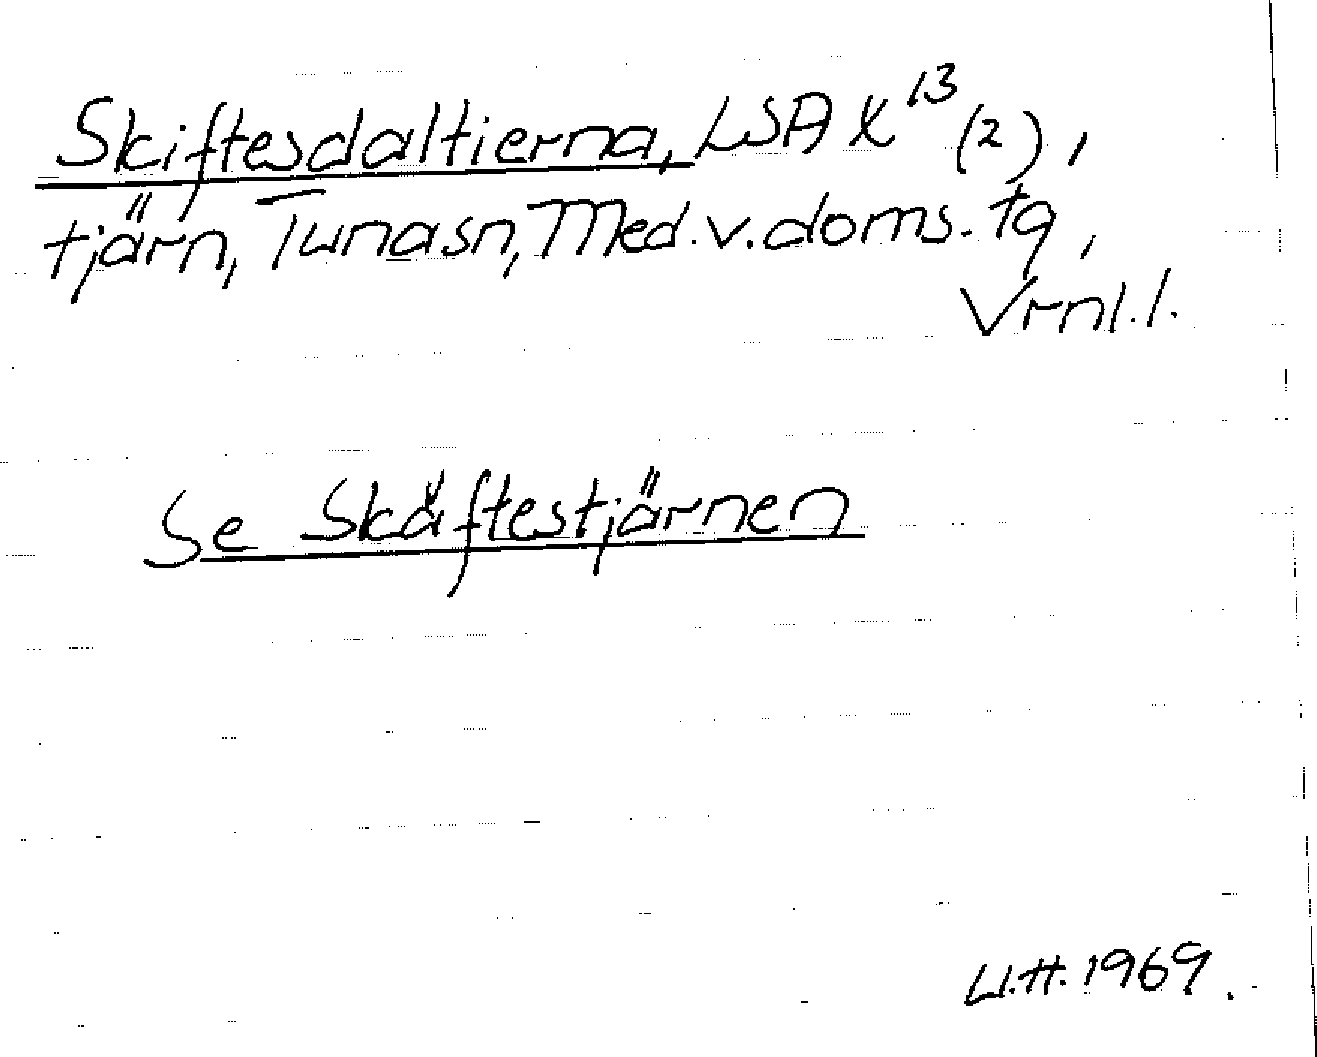 Skiftesdaltierna, LSA X¹³ (2),
tjärn, Tunasn, Med. v. doms. tg,
Vrnl. l.
Se Skäftestjärnen
U.H. 1969.